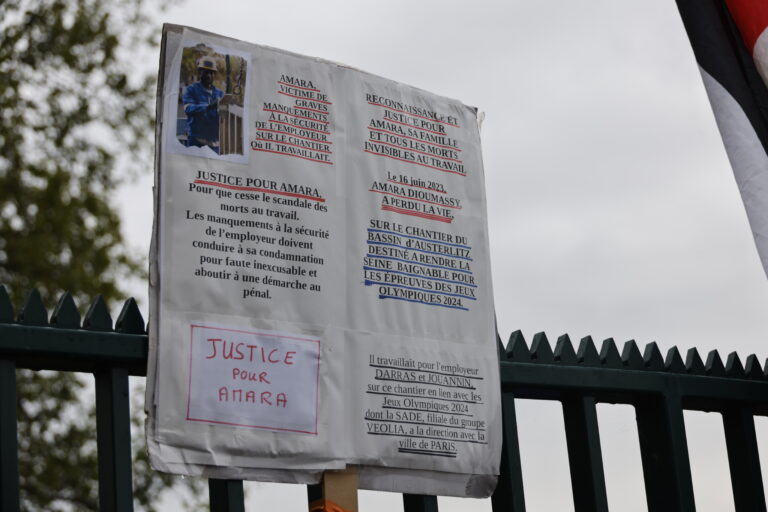 AMARA,
VICTIME DE
GRAVES
MANQUEMENTS
À LA SÉCURITÉ
DE L'EMPLOYEUR
SUR LE CHANTIER,
OÙ IL TRAVAILLAIT.
JUSTICE POUR AMARA.
Pour que cesse le scandale des
morts au travail.
Les manquements à la sécurité
de l'employeur doivent
conduire à sa condamnation
pour faute inexcusable et
aboutir à une démarche au
pénal.
JUSTICE
POUR
AMARA
RECONNAISSANCE ET
JUSTICE POUR
AMARA, SA FAMILLE
ET TOUS LES MORTS
INVISIBLES AU TRAVAIL
Le 16 juin 2023,
AMARA DIOUMASSY
A PERDU LA VIE,
SUR LE CHANTIER DU
BASSIN D'AUSTERLITZ
DESTINÉ A RENDRE LA
SEINE BAIGNABLE POUR
LES ÉPREUVES DES JEUX
OLYMPIQUES 2024.
Il travaillait pour l'employeur
DARRAS et JOUANNIN,
sur ce chantier en lien avec les
Jeux Olympiques 2024
dont la SADE, filiale du groupe
VEOLIA, a la direction avec la
ville de PARIS.